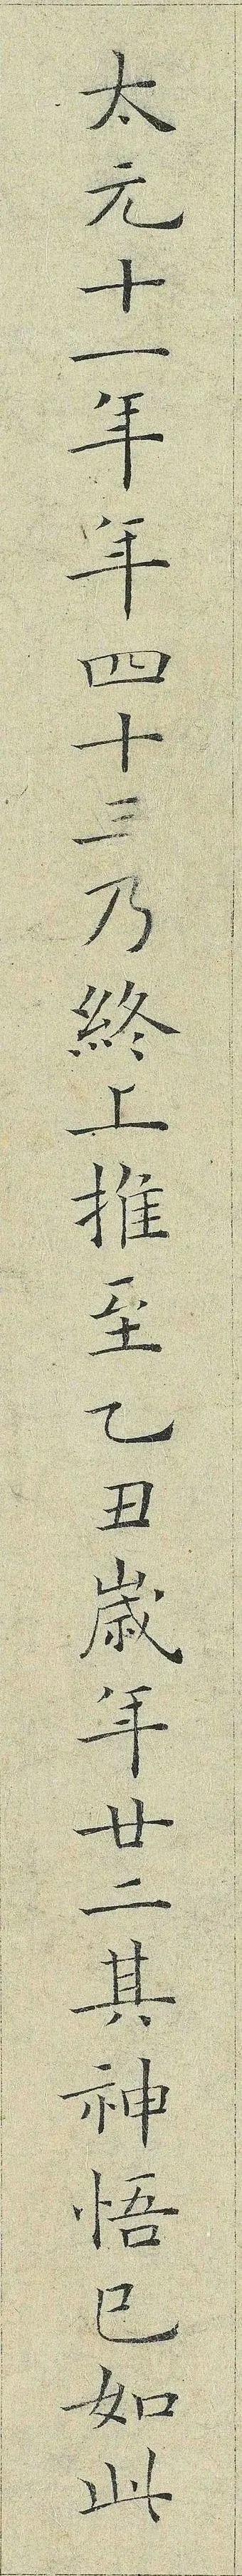 太元十一年年四十三乃終上推至乙丑歳年廿二其神悟已如此